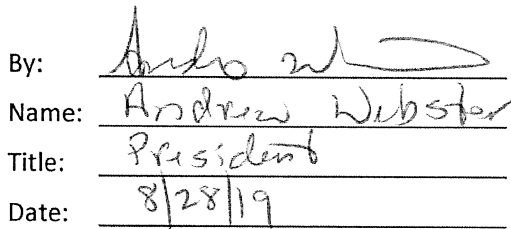 By: Andrew W
Name: Andrew Webster
Title: President
Date: 8/28/19